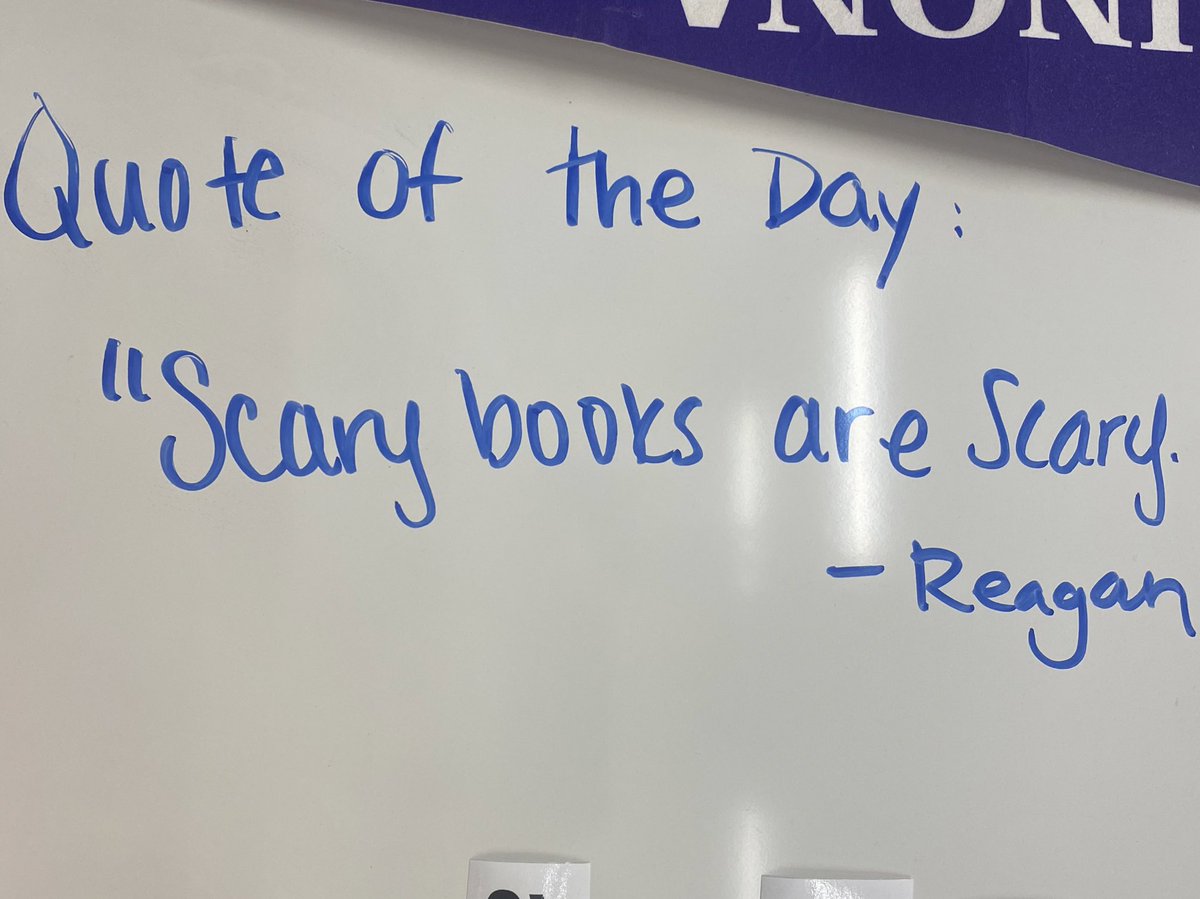 INONA
Quote of the Day:
"Scary books are Scary.
- Reagan